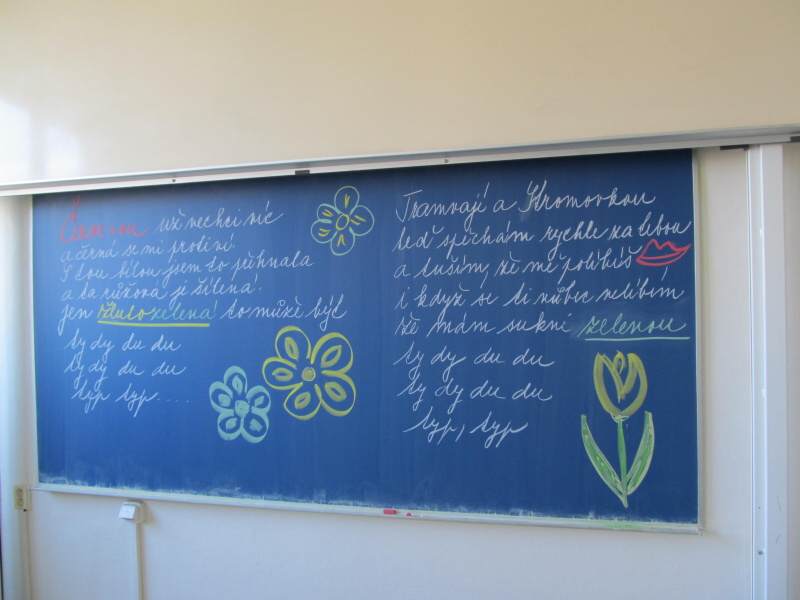 Červenou už nechci víc
a černá se mi protiví
S tou bílou jsem to přehnala
a ta růžová je šílená.
jen žlutozelená to může být
ty dy du du
ty dy du du
typ typ....
Tramvají a Hromovkou
teď spěchám rychle za tebou
a tuším, že mě políbíš
i když se ti vůbec nelíbím
že mám sukni zelenou
ty dy du du
ty dy du du
typ, typ